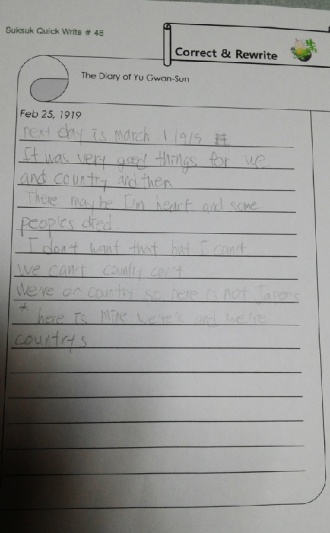 Suksuk Quick Write # 48
Correct & Rewrite
The Diary of Yu Gwan-Sun
Feb 25, 1919
next day is march 1
It was very good things for we
and country and then
There maybe I'm heart and some
peoples died
I don't want that but I can't
we can't country can't
We're on country so here is not
here is mine we're and we're
countrys